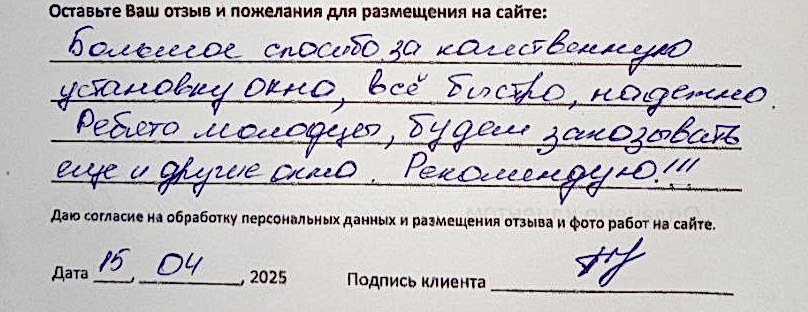 Оставьте Ваш отзыв и пожелания для размещения на сайте:
Большое спасибо за качественную
установку окна, всё быстро, надежно.
Ребята молодцы, будем заказывать
еще и другие окна. Рекомендую!!!
Даю согласие на обработку персональных данных и размещения отзыва и фото работ на сайте.
Дата 15, 04, 2025 Подпись клиента